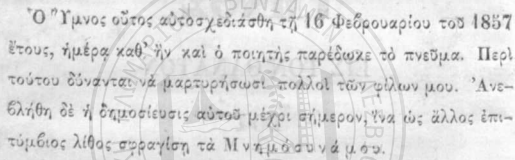 Ὁ Ὕμνος οὗτος αὐτοσχεδιάσθη τῇ 16 Φεβρουαρίου τοῦ 1857
ἔτους, ἡμέρα καθ' ἣν καὶ ὁ ποιητὴς παρέδωκε τὸ πνεῦμα. Περὶ
τούτου δύνανται νὰ μαρτυρήσωσι πολλοὶ τῶν φίλων μου. Ἀνε-
βλήθη δὲ ἡ δημοσίευσις αὐτοῦ μέχρι σήμερον, ἵνα ὡς ἄλλος ἐπι-
τύμβιος λίθος σφραγίσῃ τὰ Μνημόσυνάμου.